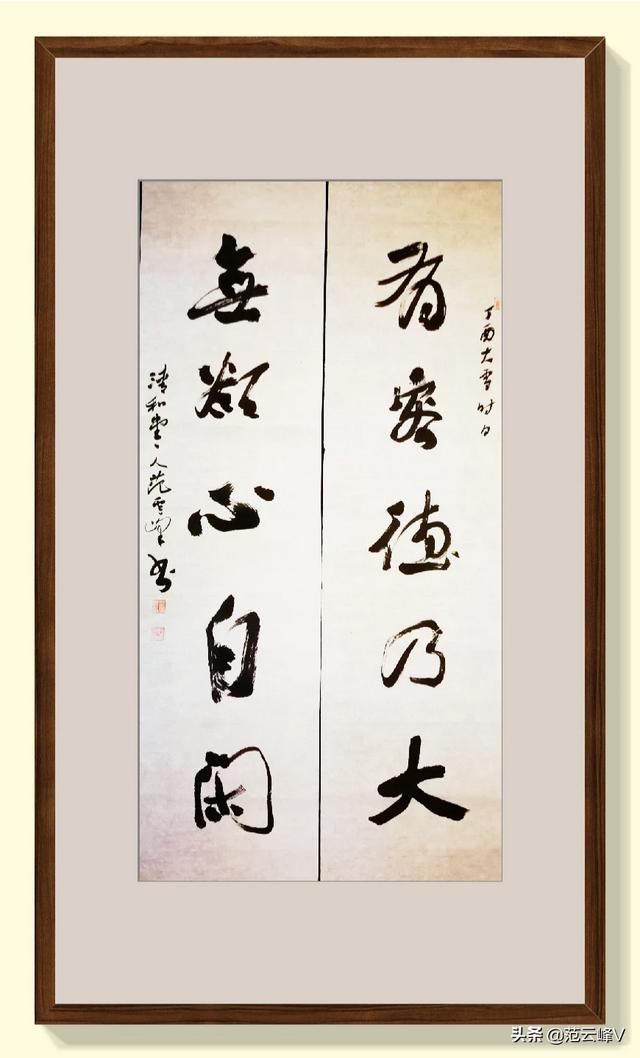 丁酉大雪时日
有容德乃大
無欲心自闲
清和堂主人范雲峰书
头条 @范云峰V